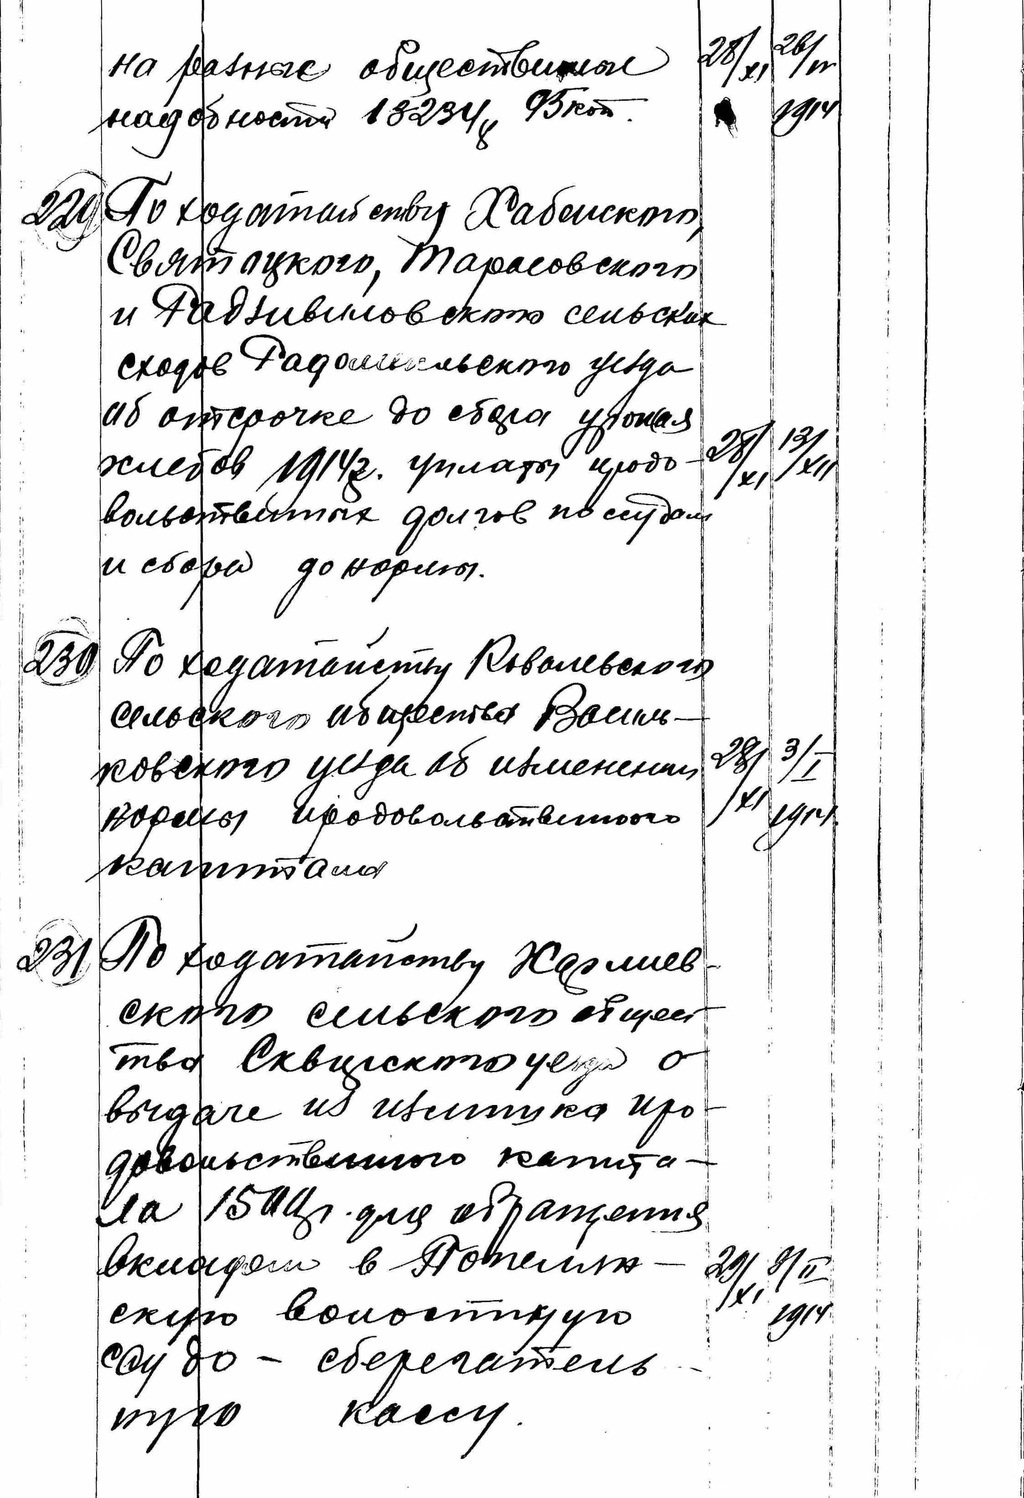 на разные общественные 28/XI 26/IV
надобности 13234 р 95 коп. 1914
229 По ходатайству Хабенского,
Святоцкого, Тарасовского
и Радзивиловского сельских
сходов Радомысльского уезда
об отсрочке до сбора урожая
хлебов 1914 г. уплаты продо- 28/XI 13/XII
вольственных долгов по ссудам
и сбора до нормы.
230 По ходатайству Ковалевского
сельского общества Василь-
ковского уезда об изменении 28/XI 3/I
нормы продовольственного 1914
капитала
231 По ходатайству
ского сельского общес
тва Сквирского уезда о
выдаче из излишка про-
довольственного капита-
ла 1500 р. для обращения
вкладом в Попельн- 29/XI 9/II
скую волостную 1914
ссудо-сберегатель-
ную кассу.